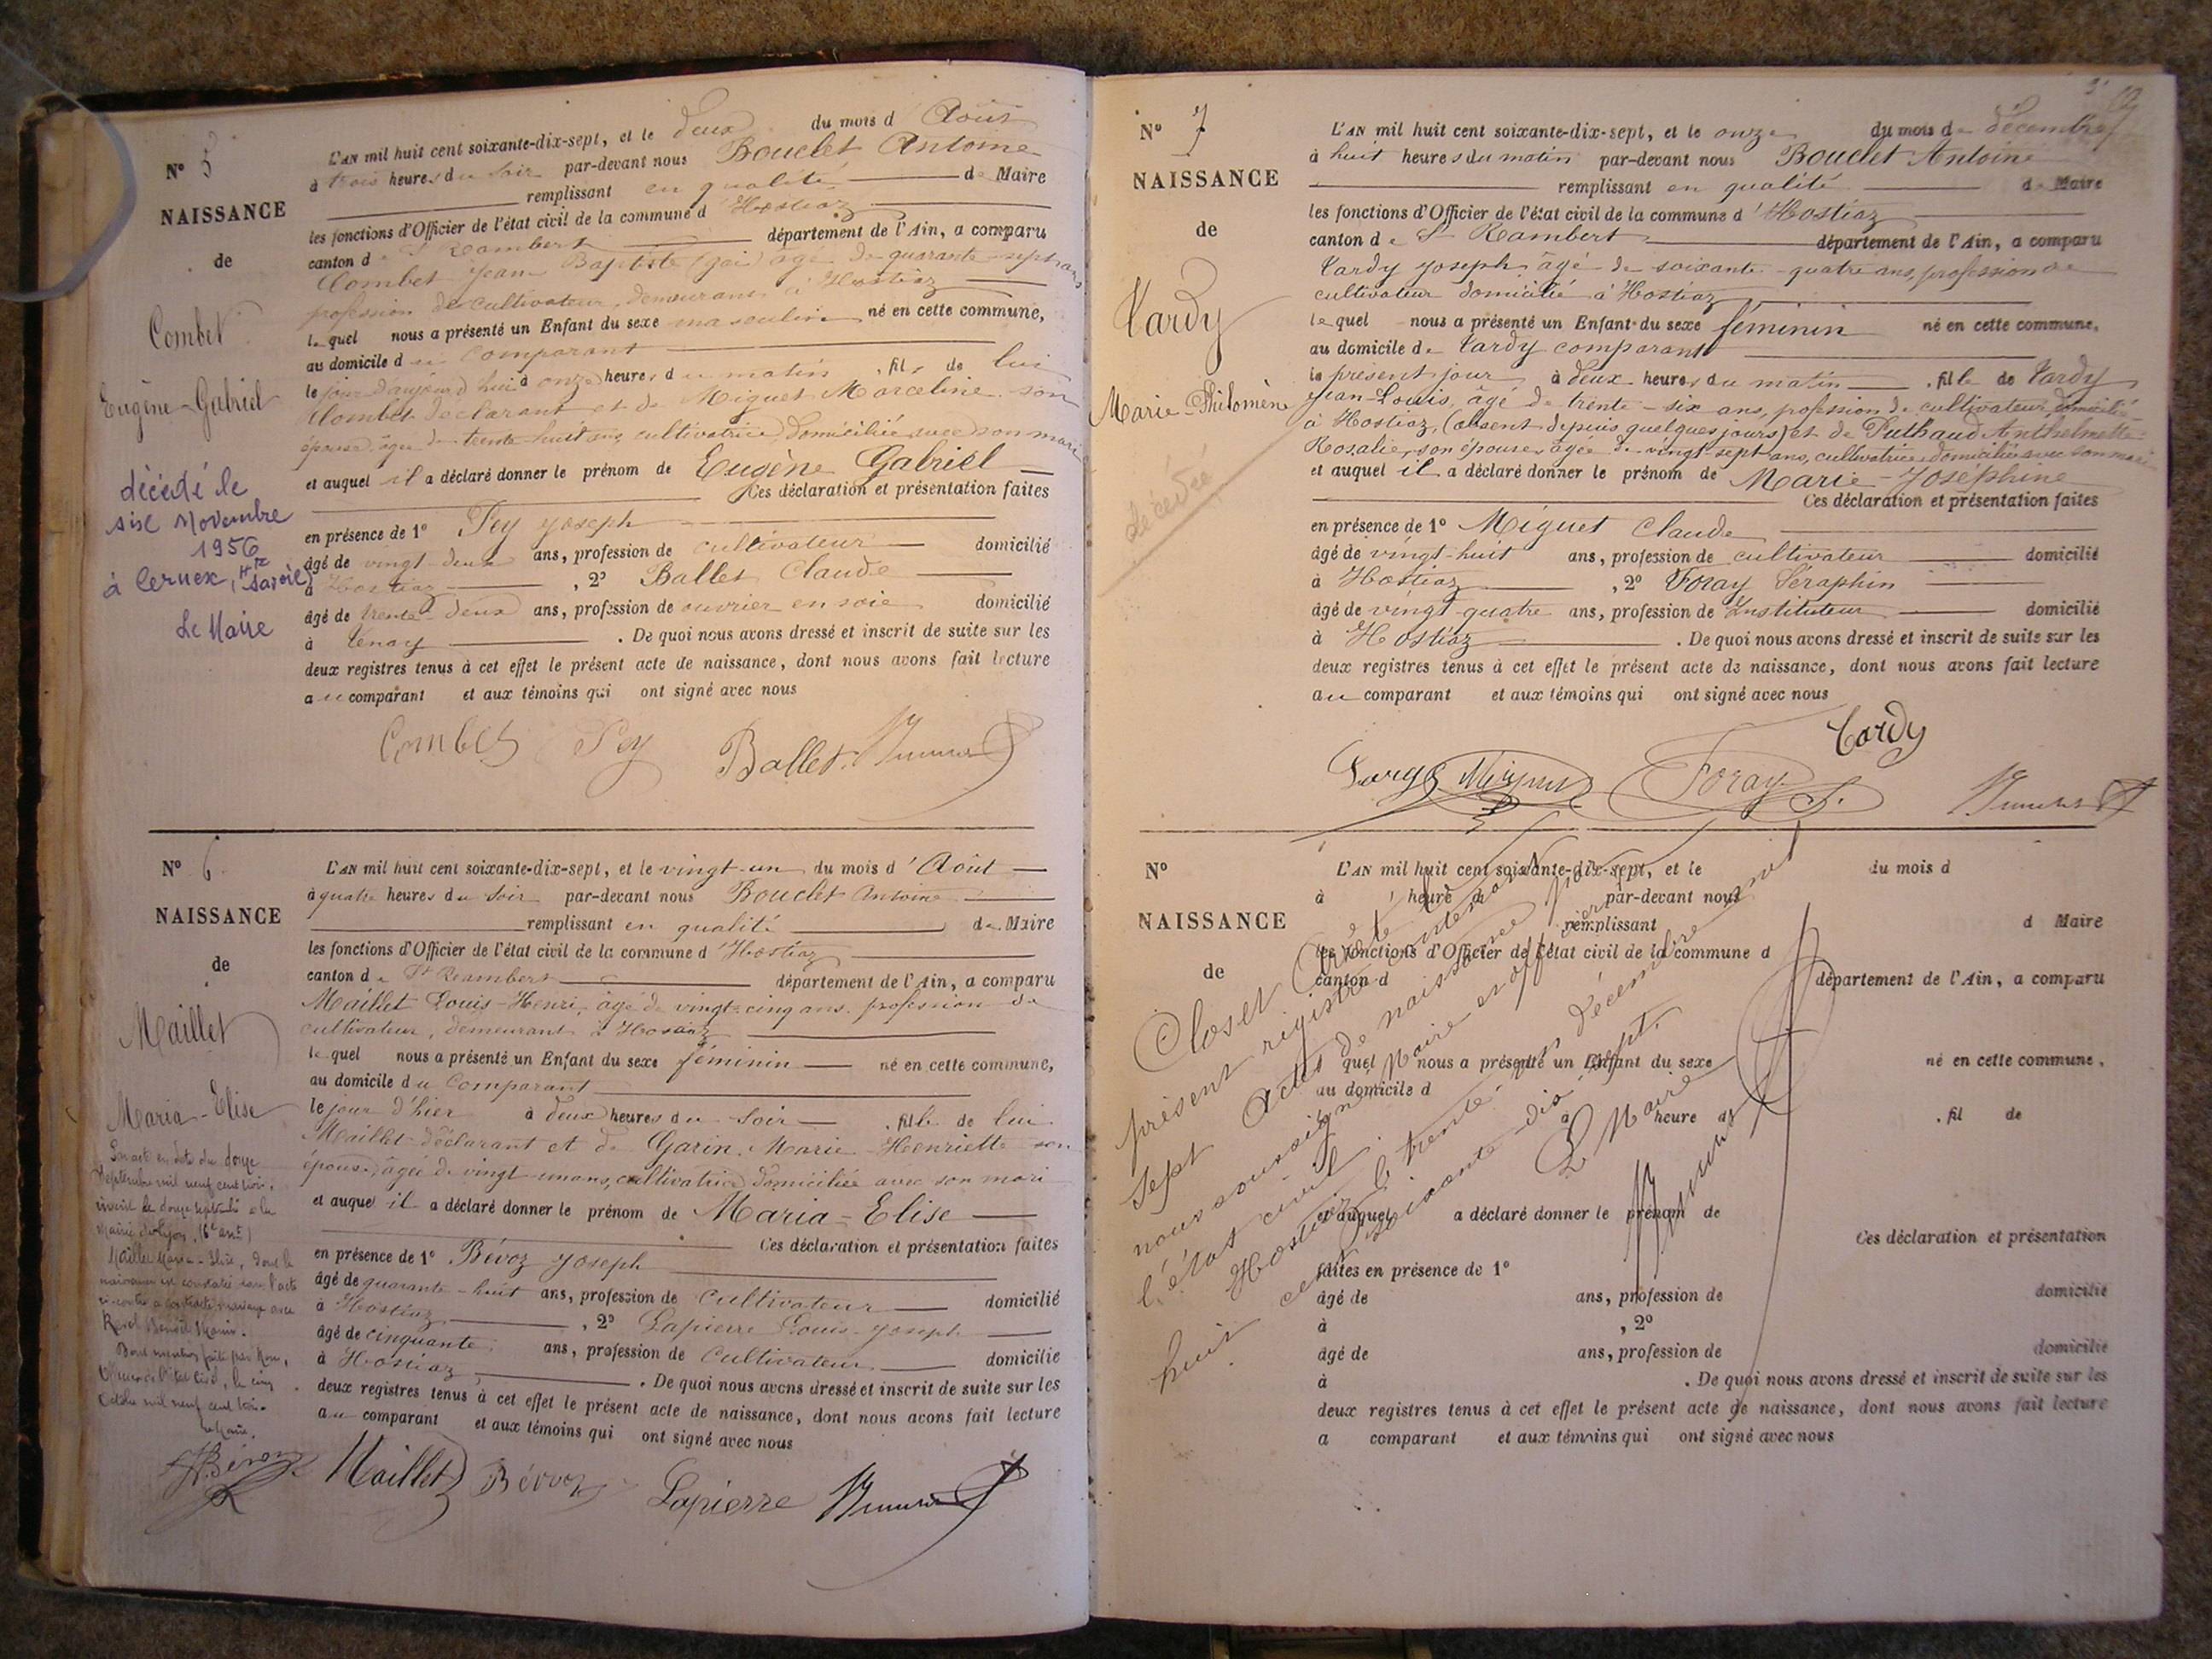 N° 5
NAISSANCE
de
Combet
Eugène-Gabriel
décédé le
six Novembre
1956
à Cernex, Hte Savoie
Le Maire
L'AN mil huit cent soixante-dix-sept, et le deux du mois d'Août
à trois heures du soir par-devant nous Bouclet Antoine
remplissant en qualité de Maire
les fonctions d'Officier de l'état civil de la commune d'Hostiaz
canton de St Rambert département de l'Ain, a comparu
Combet Jean Baptiste âgé de quarante-sept ans
profession de cultivateur, demeurant à Hostiaz
lequel nous a présenté un Enfant du sexe masculin né en cette commune,
au domicile du comparant
le jour d'aujourd'hui à onze heures du matin, fils de lui
Combet déclarant et de Miguet Marceline son
épouse, âgée de trente-huit ans, cultivatrice, domiciliée avec son mari
et auquel il a déclaré donner le prénom de Eugène Gabriel
Ces déclaration et présentation faites
en présence de 1° Pey Joseph
âgé de vingt-deux ans, profession de cultivateur domicilié
à Hostiaz, 2° Ballet Claude
âgé de trente-deux ans, profession de ouvrier en soie domicilié
à Tenay. De quoi nous avons dressé et inscrit de suite sur les
deux registres tenus à cet effet le présent acte de naissance, dont nous avons fait lecture
au comparant et aux témoins qui ont signé avec nous
Combet Pey Ballet
N° 6
NAISSANCE
de
Maillet
Maria-Elise
L'AN mil huit cent soixante-dix-sept, et le vingt-un du mois d'Août
à quatre heures du soir par-devant nous Bouclet Antoine
remplissant en qualité de Maire
les fonctions d'Officier de l'état civil de la commune d'Hostiaz
canton de St Rambert département de l'Ain, a comparu
Maillet Louis-Henri, âgé de vingt-cinq ans, profession de
cultivateur, demeurant à Hostiaz
lequel nous a présenté un Enfant du sexe féminin né en cette commune,
au domicile du Comparant
le jour d'hier à deux heures du soir, fille de lui
Maillet déclarant et de Garin Marie Henriette son
épouse, âgée de vingt-un ans, cultivatrice domiciliée avec son mari
et auquel il a déclaré donner le prénom de Maria-Elise
Ces déclaration et présentation faites
en présence de 1° Bévoz Joseph
âgé de quarante-huit ans, profession de Cultivateur domicilié
à Hostiaz, 2° Lapierre Louis-Joseph
âgé de cinquante ans, profession de Cultivateur domicilié
à Hostiaz. De quoi nous avons dressé et inscrit de suite sur les
deux registres tenus à cet effet le présent acte de naissance, dont nous avons fait lecture
au comparant et aux témoins qui ont signé avec nous
Son acte en date du douze
Septembre mil neuf cent trois,
inscrit le douze septembre à la
Mairie de Lyon, (6e arrt)
Maillet Maria-Elise, dont la
naissance est constatée dans l'acte
ci-contre a contracté mariage avec
Benoît
Dont mention faite par Nous,
Officier de l'Etat Civil, le cinq
Octobre mil neuf cent trois.
Le Maire,
Bévoz Maillet Bévoz Lapierre
N° 7
NAISSANCE
de
Tardy
Marie-Philomène
décédée
L'AN mil huit cent soixante-dix-sept, et le onze du mois de décembre
à huit heures du matin par-devant nous Bouclet Antoine
remplissant en qualité de Maire
les fonctions d'Officier de l'état civil de la commune d'Hostiaz
canton de St Rambert département de l'Ain, a comparu
Tardy Joseph, âgé de soixante-quatre ans, profession de
cultivateur domicilié à Hostiaz
lequel nous a présenté un Enfant du sexe féminin né en cette commune,
au domicile de Tardy comparant
le présent jour à deux heures du matin, fille de Tardy
Jean-Louis, âgé de trente-six ans, profession de cultivateur, domicilié
à Hostiaz, (absent depuis quelques jours) et de Puthaud Anthelmette
Rosalie, son épouse, âgée de vingt-sept ans, cultivatrice, domiciliée avec son mari
et auquel il a déclaré donner le prénom de Marie-Joséphine
Ces déclaration et présentation faites
en présence de 1° Miguet Claude
âgé de vingt-huit ans, profession de cultivateur domicilié
à Hostiaz, 2° Foray Séraphin
âgé de vingt-quatre ans, profession de Instituteur domicilié
à Hostiaz. De quoi nous avons dressé et inscrit de suite sur les
deux registres tenus à cet effet le présent acte de naissance, dont nous avons fait lecture
au comparant et aux témoins qui ont signé avec nous
Tardy
Miguet Foray S.
N°
NAISSANCE
de
L'AN mil huit cent soixante-dix-sept, et le du mois d
à heure d par-devant nous
remplissant d Maire
les fonctions d'Officier de l'état civil de la commune d
canton d département de l'Ain, a comparu
quel nous a présenté un Enfant du sexe né en cette commune,
au domicile d
à heure d . fil de
et auquel a déclaré donner le prénom de
Ces déclaration et présentation
faites en présence de 1°
âgé de ans, profession de domicilié
à , 2°
âgé de ans, profession de domicilié
à . De quoi nous avons dressé et inscrit de suite sur les
deux registres tenus à cet effet le présent acte de naissance, dont nous avons fait lecture
a comparant et aux témoins qui ont signé avec nous
Clos et Arrêté le
présent registre contenant
sept actes de naissance par
nous soussigné Maire et officier de
l'état civil.
Hostiaz le trente un décembre mil
huit cent soixante-dix-sept.
Le Maire